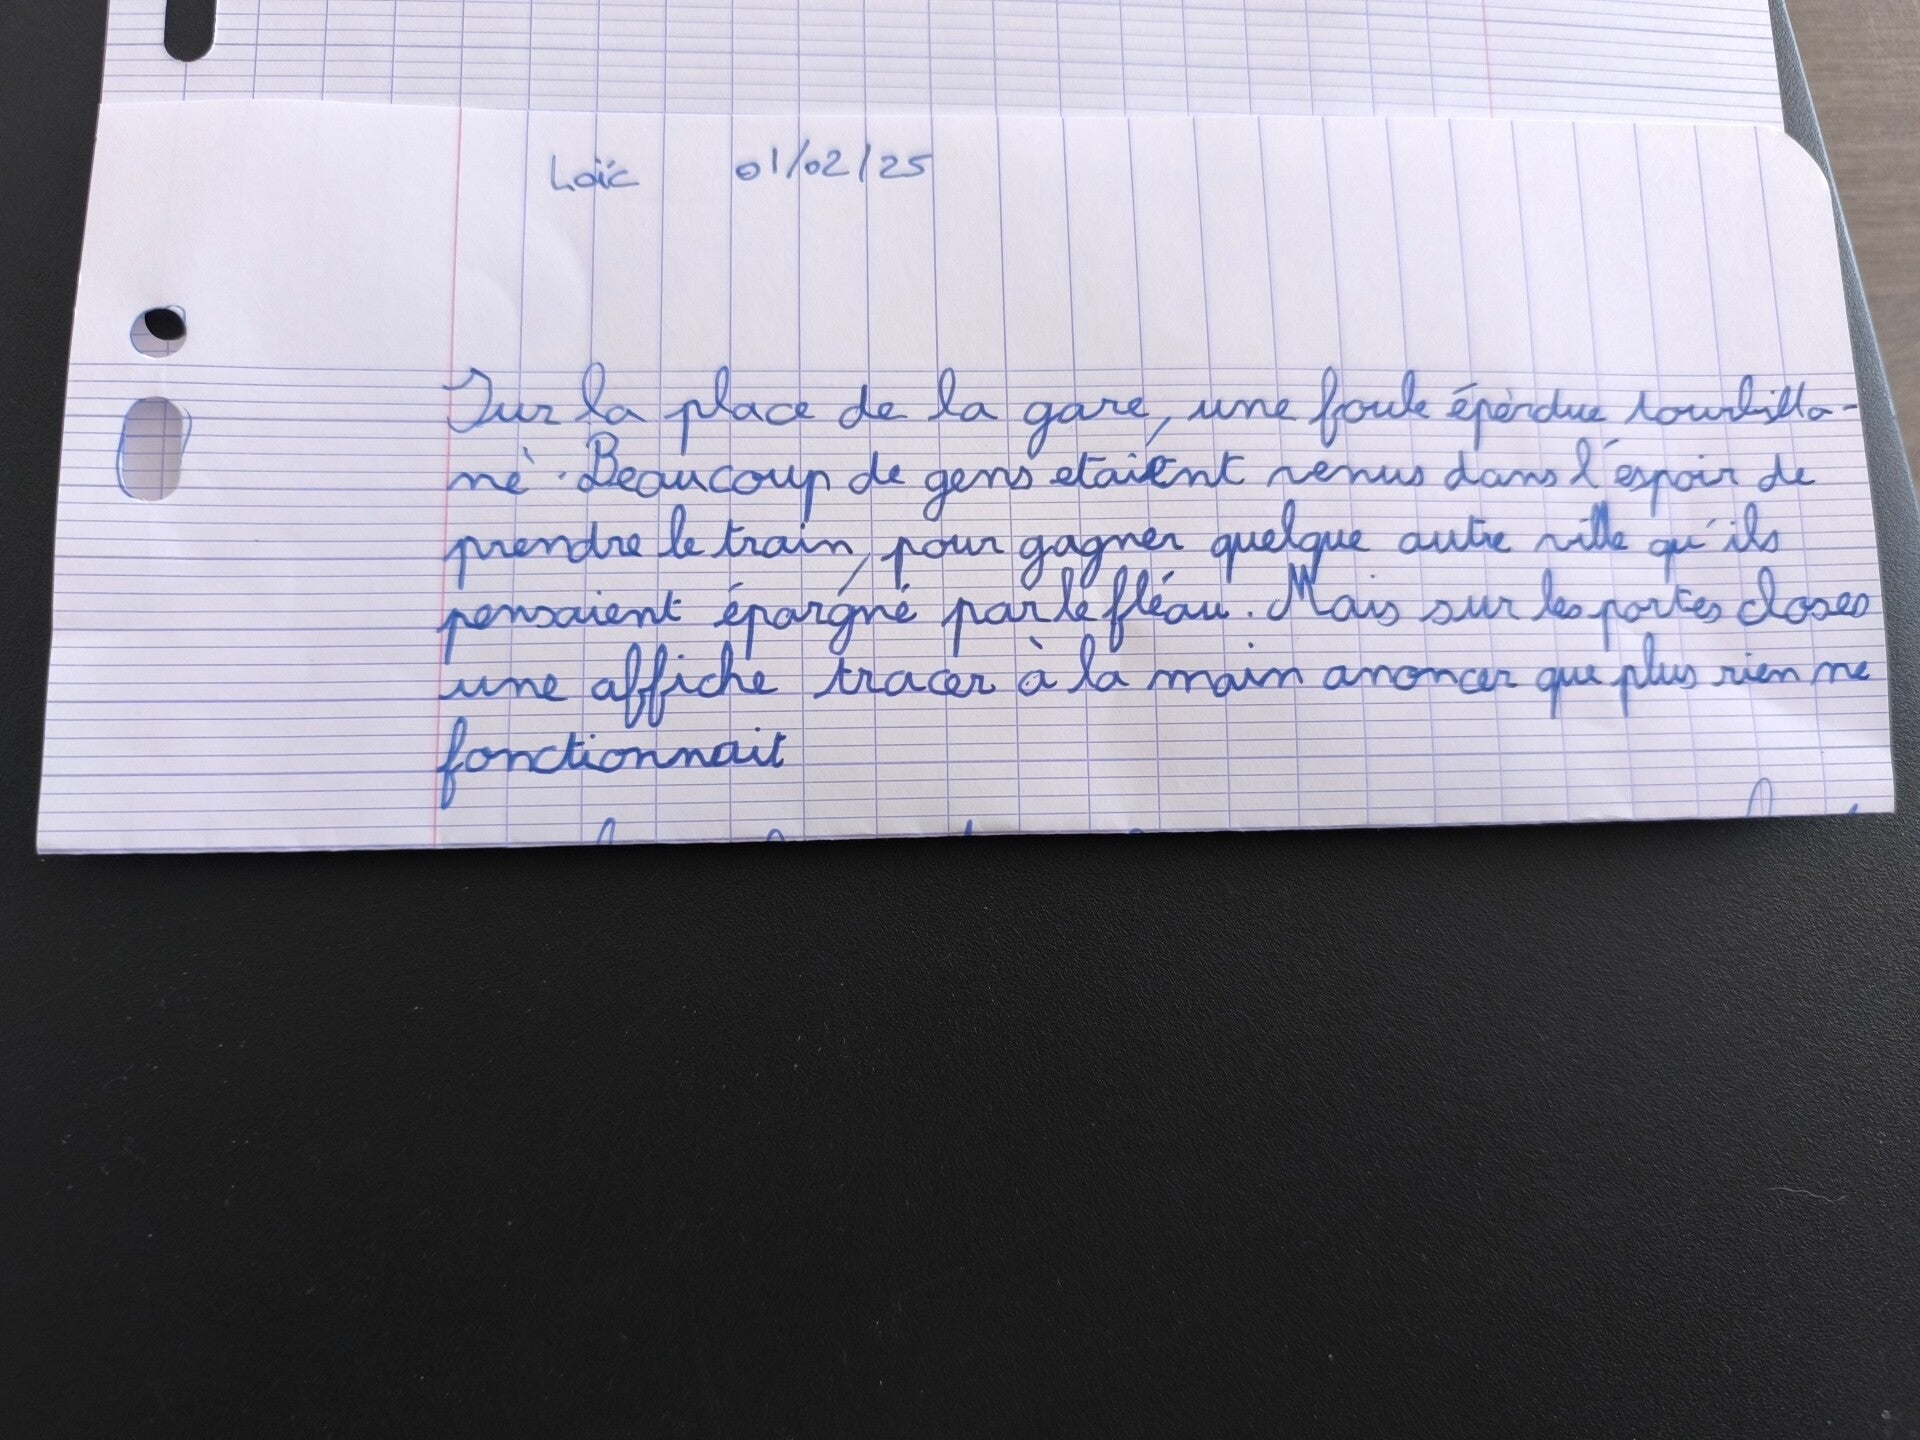 Loïc 01/02/25
Sur la place de la gare, une foule éperdue tourbillo-
né. Beaucoup de gens etaient venus dans l'espoir de
prendre le train, pour gagner quelque autre ville qu'ils
pensaient épargné par le fléau. Mais sur les portes closes
une affiche tracer à la main anoncer que plus rien ne
fonctionnait